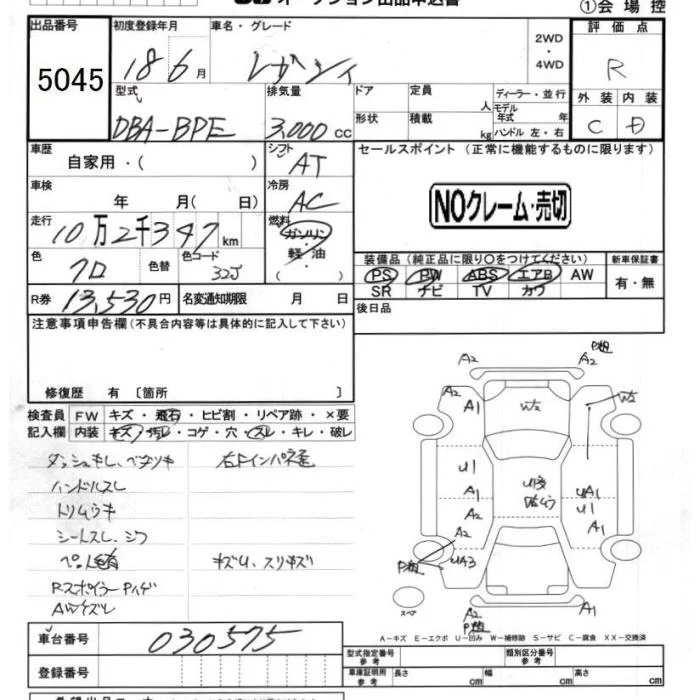 ①会場控
出品番号
5045
初度登録年月
18 6月
車名・グレード
レガシィ
2WD
・
4WD
評価点
R
外装 内装
C D
型式
DBA-BPE
排気量
3,000cc
ドア
形状
定員
人
積載
kg
ディーラー・並行
モデル年式 年
ハンドル 左・右
車歴
自家用・( )
シフト
AT
セールスポイント(正常に機能するものに限ります)
NOクレーム・売切
車検
年 月( 日)
冷房
AC
走行
10万2千347km
燃料
ガソリン
・
軽油
( )
色
クロ
色替
色コード
32J
装備品(純正品に限り○をつけてください)
PS PW ABS エアB AW
SR ナビ TV カワ
新車保証書
有・無
R券 13,530円
名変通知期限 月 日
後日品
注意事項申告欄(不具合内容等は具体的に記入して下さい)
修復歴 有〔箇所 〕
検査員記入欄
FW キズ・飛石・ヒビ割・リペア跡・×要
内装 キズ・汚レ・コゲ・穴・スレ・キレ・破レ
ハンドルスレ
トリムウキ
シートスレ、シワ
Rスポイラー Pハゲ
A2
A2
A2
A1
W2
W2
U1
A1
A2
UA1
U1
A1
UA3
A2
A1
スペア
A-キズ E-エクボ U-凹み W-補修跡 S-サビ C-腐食 XX-交換済
車台番号
030575
登録番号
型式指定番号 参考
類別区分番号 参考
車庫証明用 参考
長さ cm
幅 cm
高さ cm